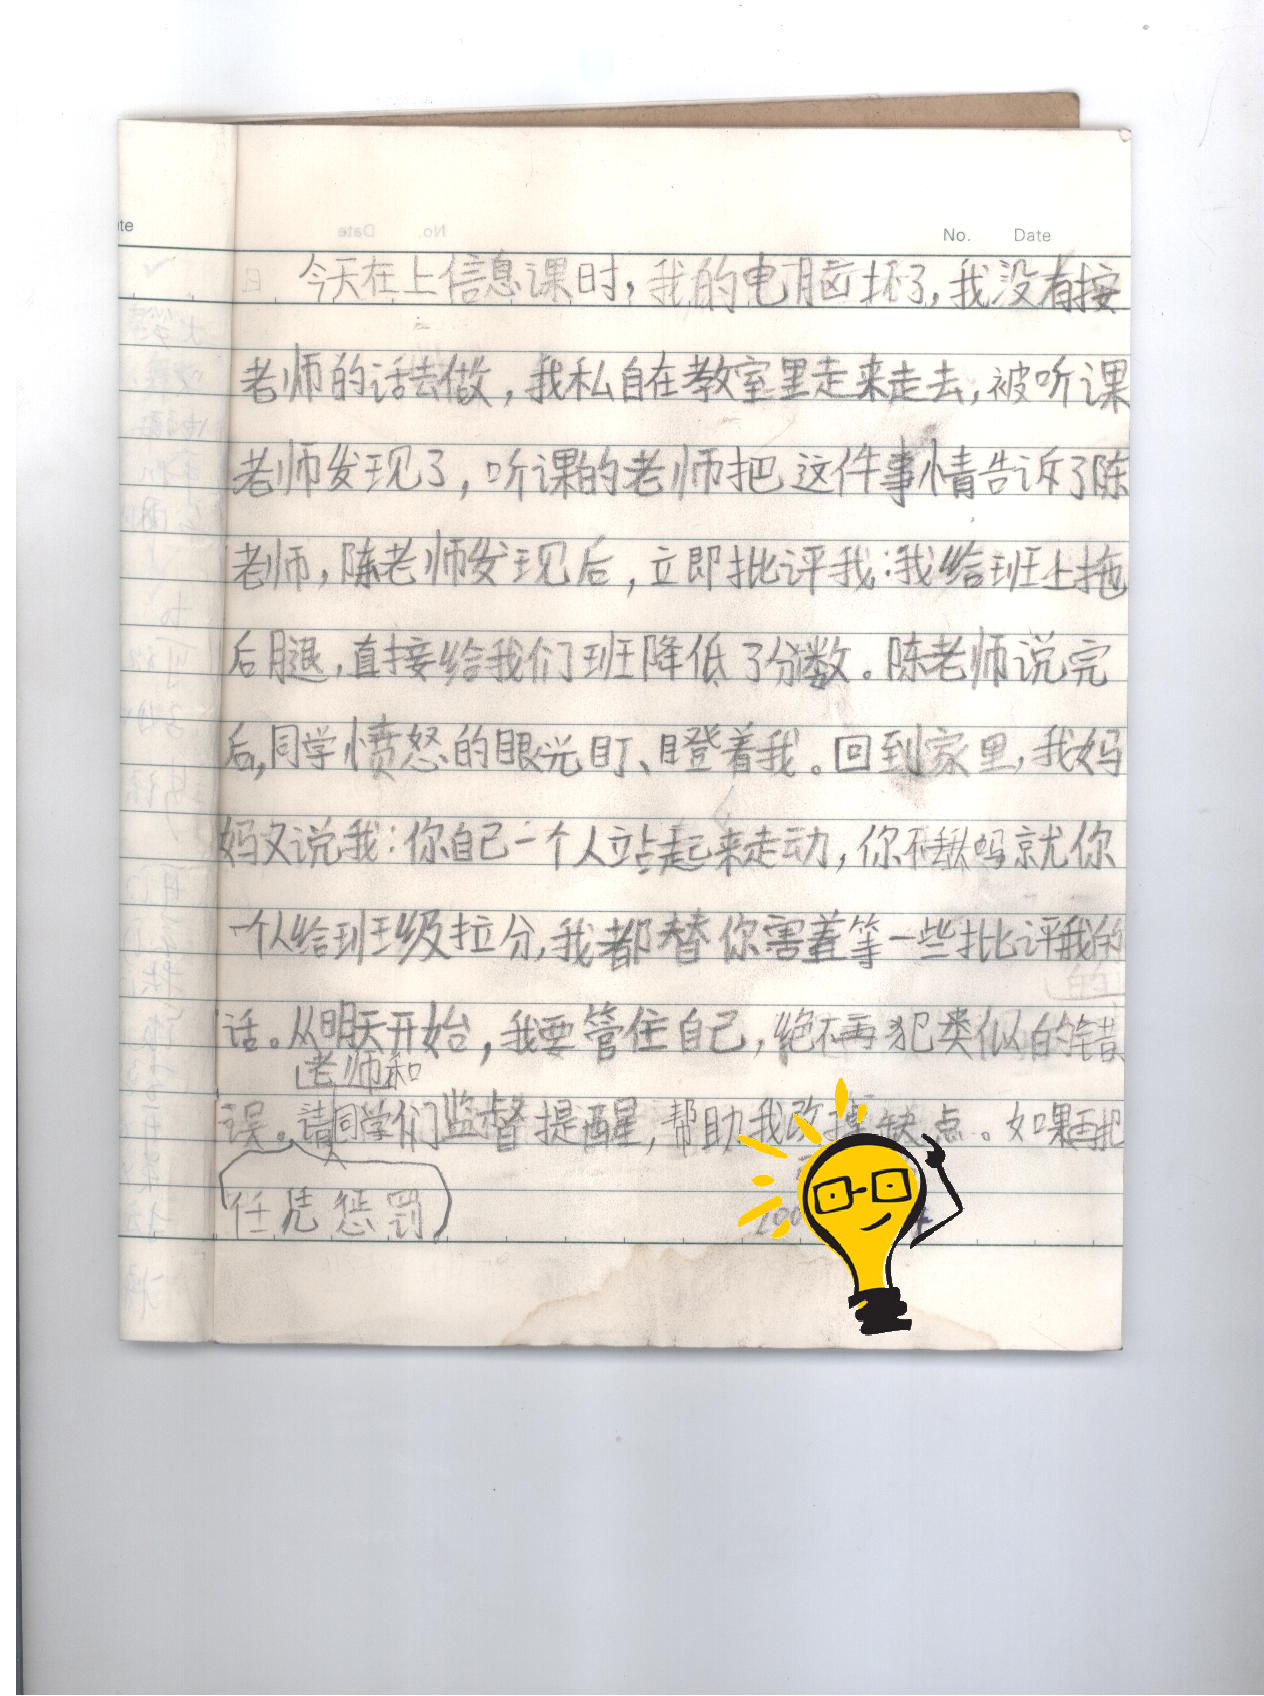 No. Date
今天在上信息课时，我的电脑坏了，我没有按
老师的话去做，我私自在教室里走来走去，被听课
老师发现了，听课的老师把这件事情告诉了陈
老师，陈老师发现后，立即批评我：我给班上拖
后腿，直接给我们班降低了分数。陈老师说完
后，同学愤怒的眼光盯、瞪着我。回到家里，我妈
妈又说我：你自己一个人站起来走动，你不吗就你
一个人给班级拉分，我都替你害羞等一些批评我的
话。从明天开始，我要管住自己，绝不再犯类似的错
老师和
误。请同学们监督提醒，帮助我改掉缺点。如果再犯
任凭惩罚